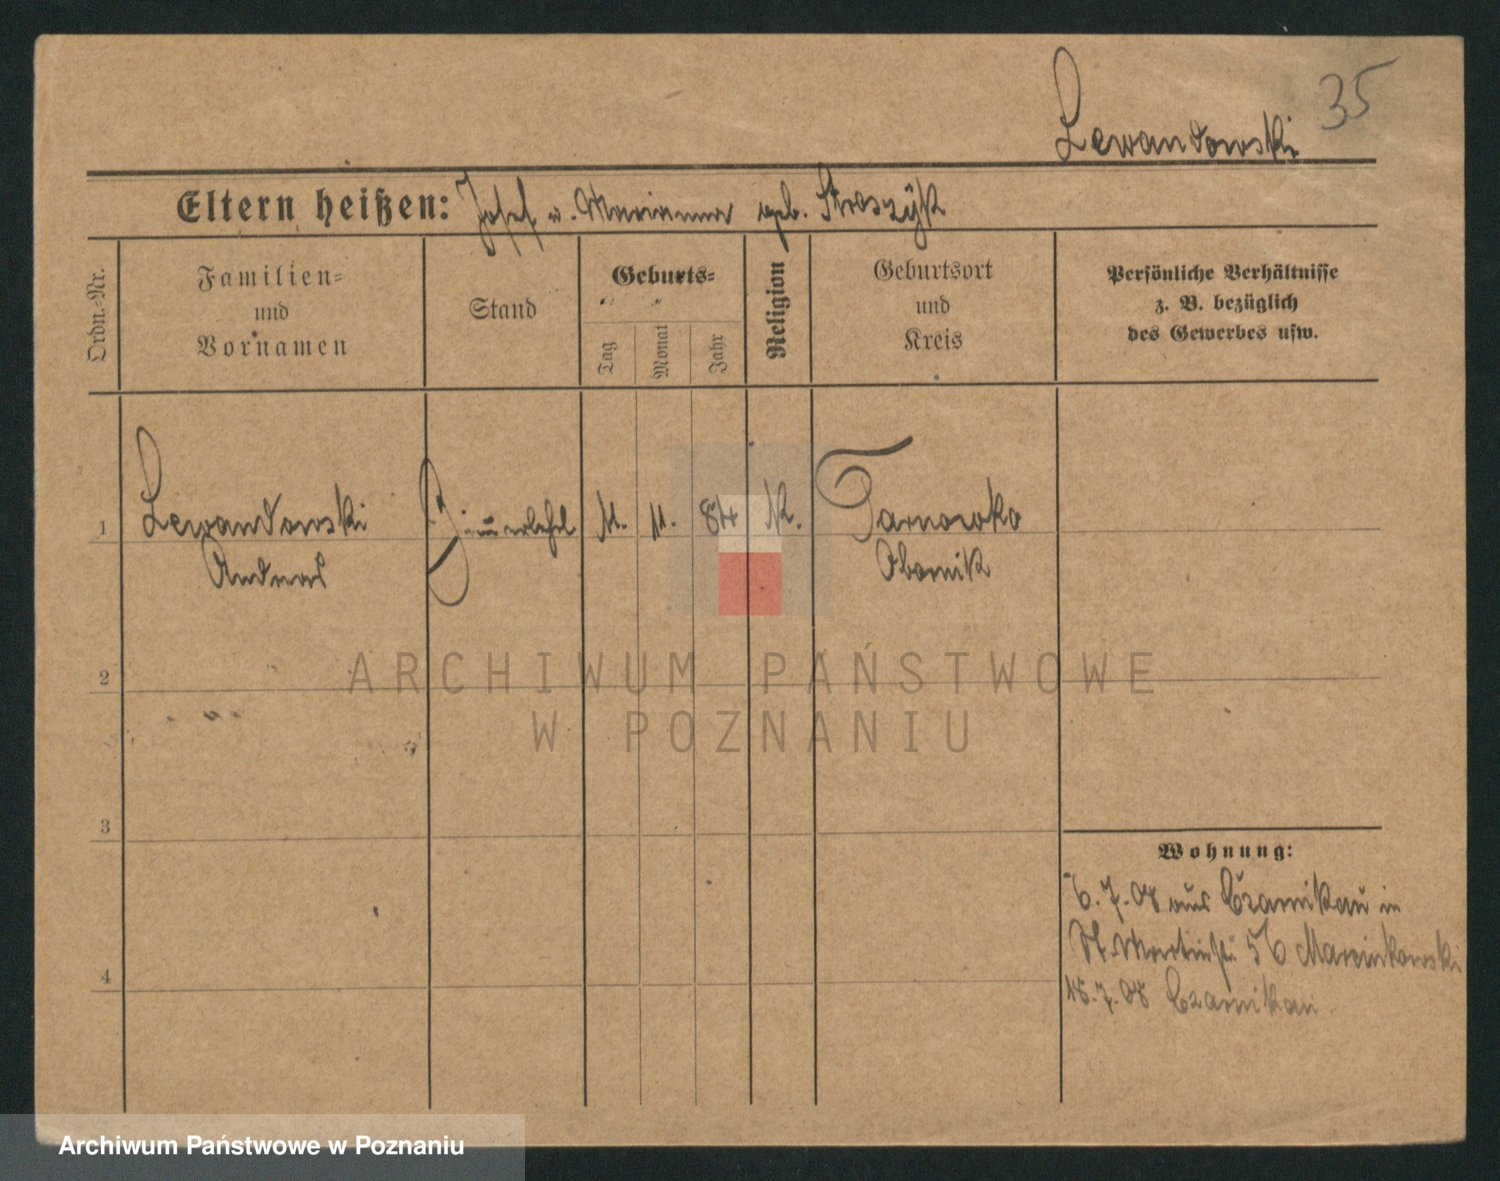 35
Lewandowski
Eltern heißen: Josef u. Marianna geb. Straszyk
Ordn.-Nr.
Familien-
und
Vornamen
Stand
Geburts-
Tag
Monat
Jahr
Religion
Geburtsort
und
Kreis
Persönliche Verhältnisse
z. B. bezüglich
des Gewerbes usw.
1 Lewandowski 11. 11. 84 K. Tarnowko
Andreas Obornik
2
3
4
Wohnung:
6.7.08 aus Czarnikau in
St. Martinstr. 56 Marcinkowski
18.7.08 Czarnikau.
ARCHIWUM PAŃSTWOWE
W POZNANIU
Archiwum Państwowe w Poznaniu